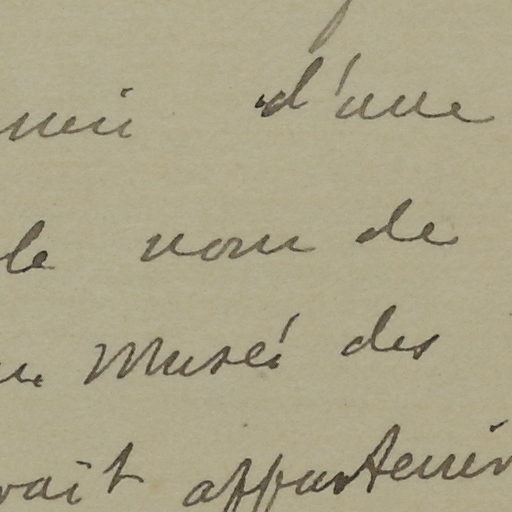 d'une
le nom de
Musée des
appartenir